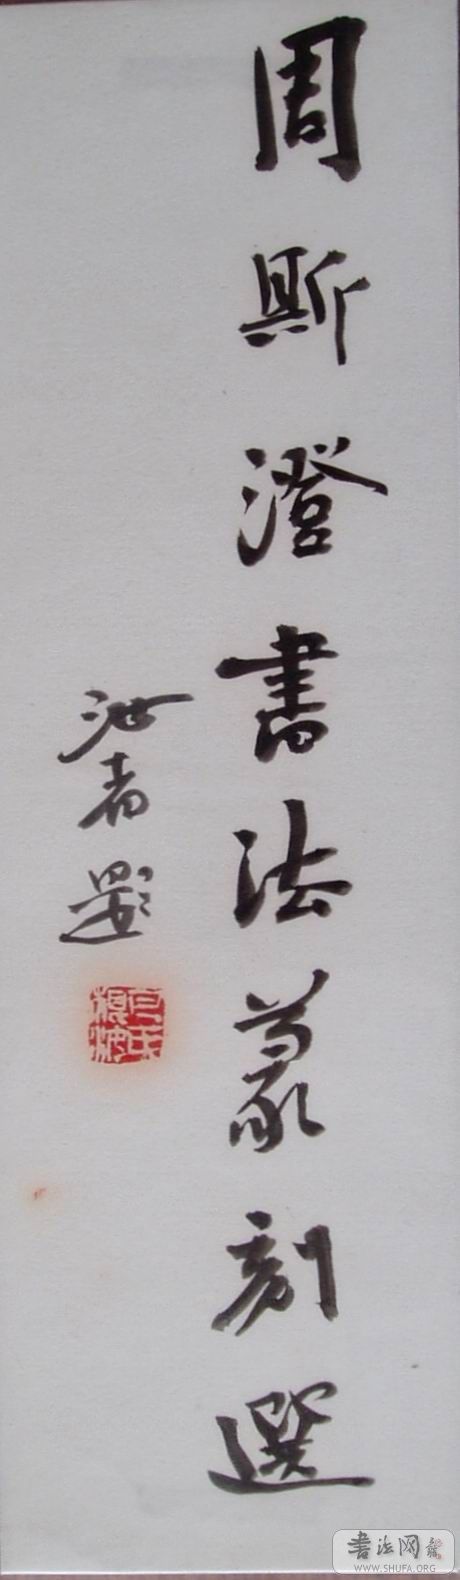 周斯澄書法篆刻選
汝者题
書法网
WWW.SHUFA.ORG